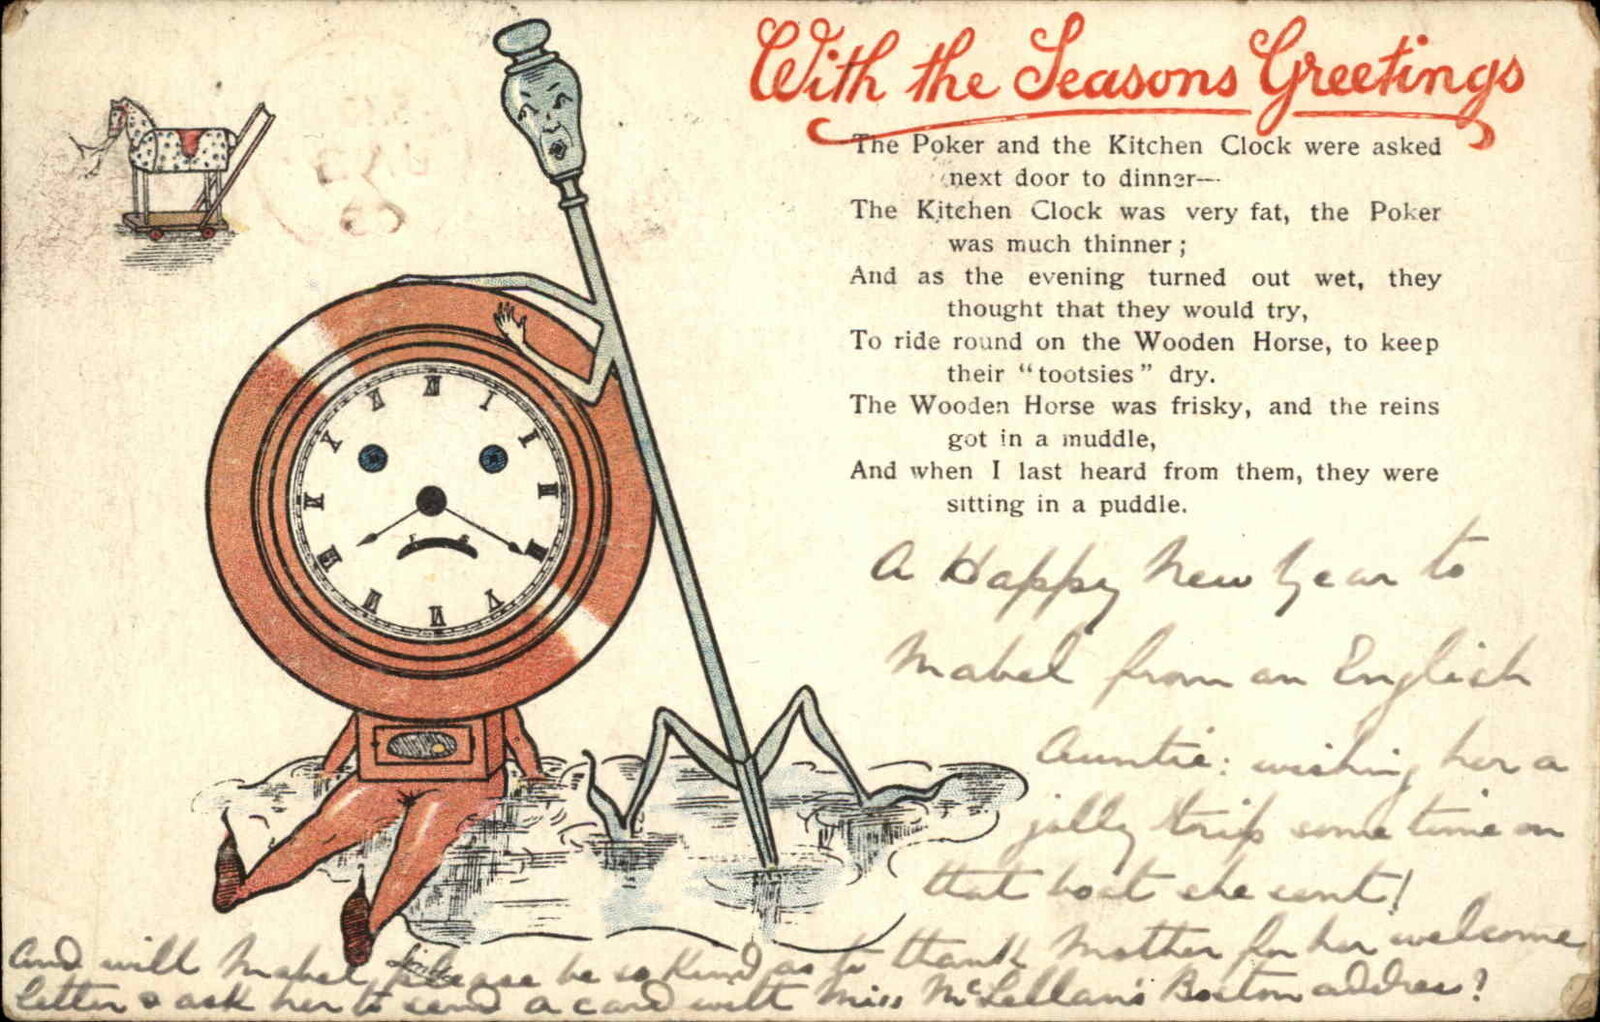 With the Seasons Greetings
The Poker and the Kitchen Clock were asked
next door to dinner—
The Kitchen Clock was very fat, the Poker
was much thinner ;
And as the evening turned out wet, they
thought that they would try,
To ride round on the Wooden Horse, to keep
their "tootsies" dry.
The Wooden Horse was frisky, and the reins
got in a muddle,
And when I last heard from them, they were
sitting in a puddle.
A Happy New Year to
Mabel from an English
Auntie: wishing her a
jolly trip some time on
that boat she sent!
And will Mabel please be so kind as to thank Mother for her welcome
letter & ask her to send a card with Miss McLellan's Boston address?